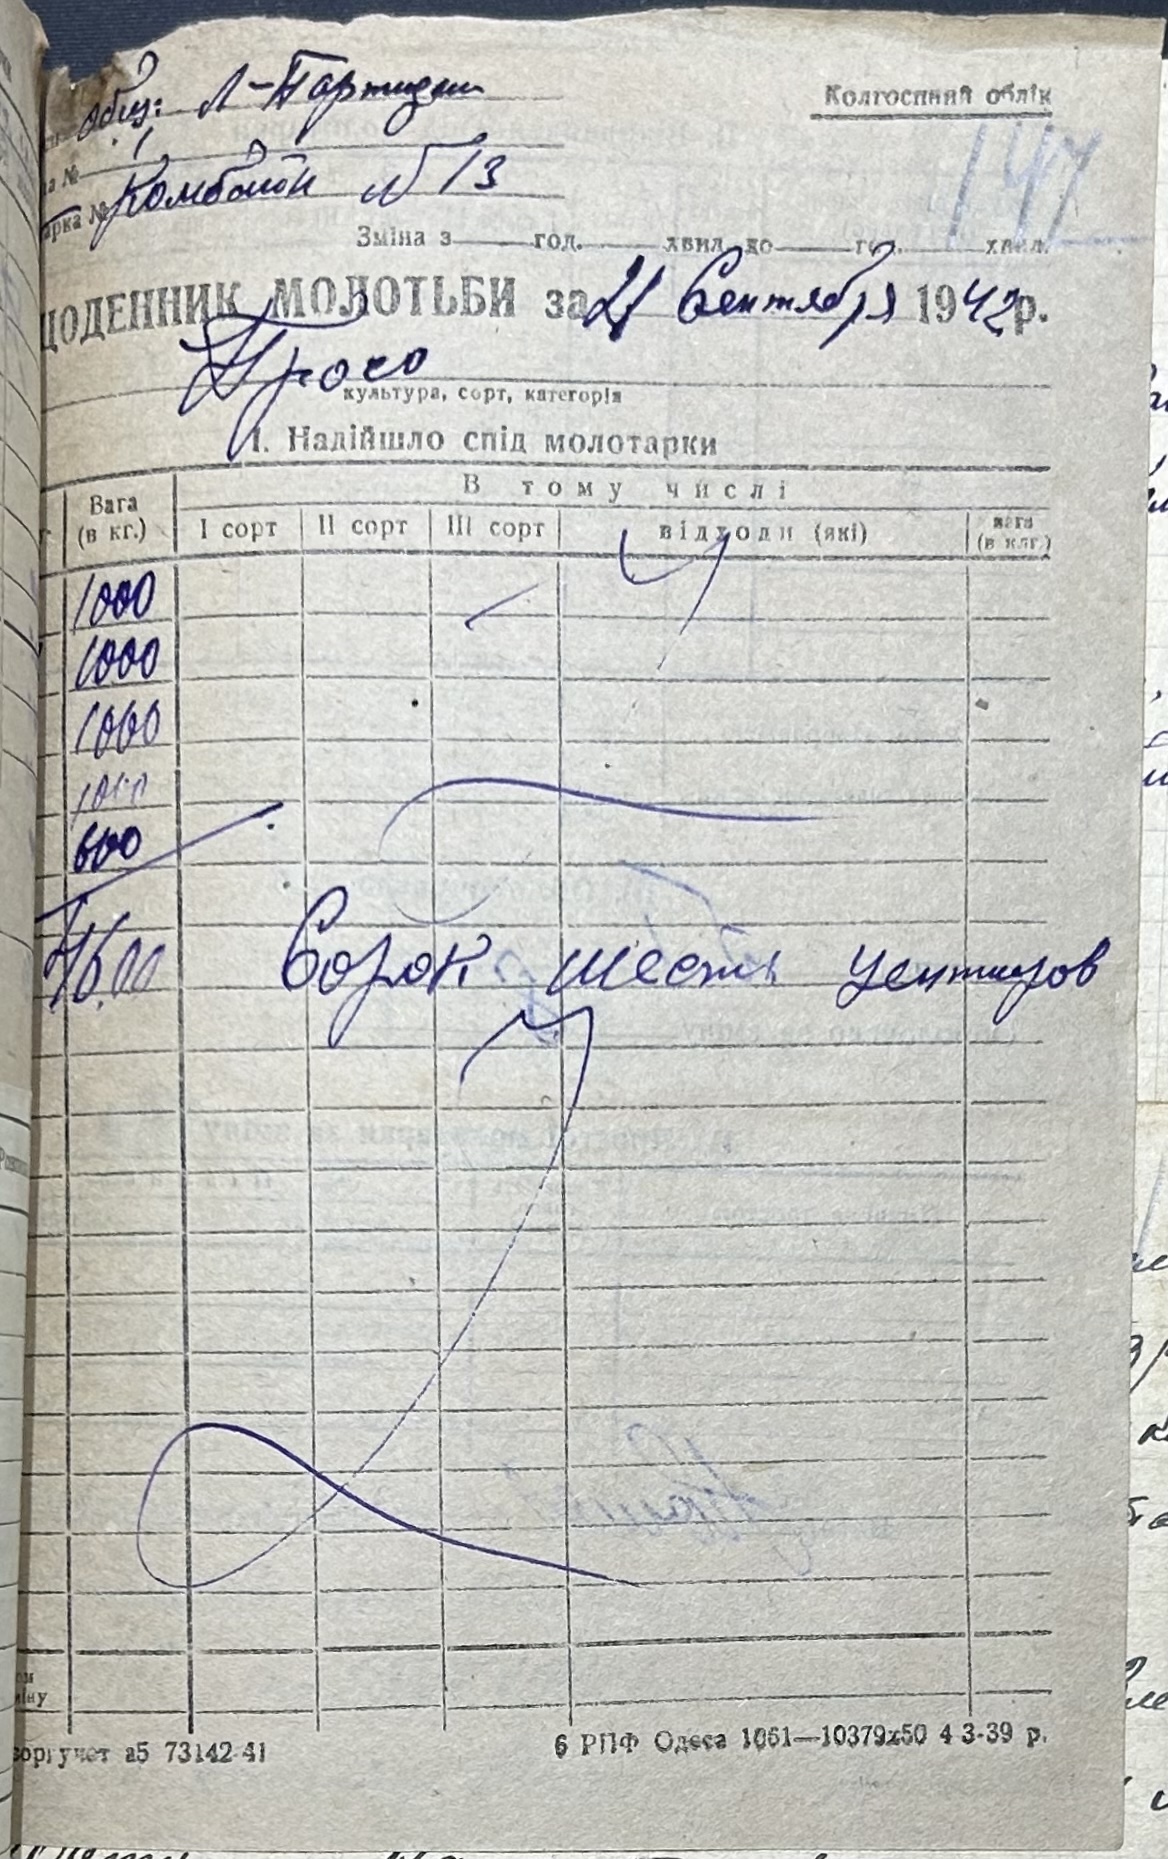 общ: Л-Партизан
Колгоспний облік
147
а №
арка № Комбайн № 13
Зміна з год. хвил. до го. хвил.
ЩОДЕННИК МОЛОТЬБИ за 21 Сентября 1942 р.
Просо
культура, сорт, категорія
I. Надійшло спід молотарки
Вага (в кг.)
В тому числі
I сорт II сорт III сорт відходи (які) вага (в клг.)
1000
1000
1000
1000
600
46.00 Сорок шесть центнеров
зміну
оргучет а5 73142-41 6 РПФ Одеса 1061—10379х50 4 3-39 р.